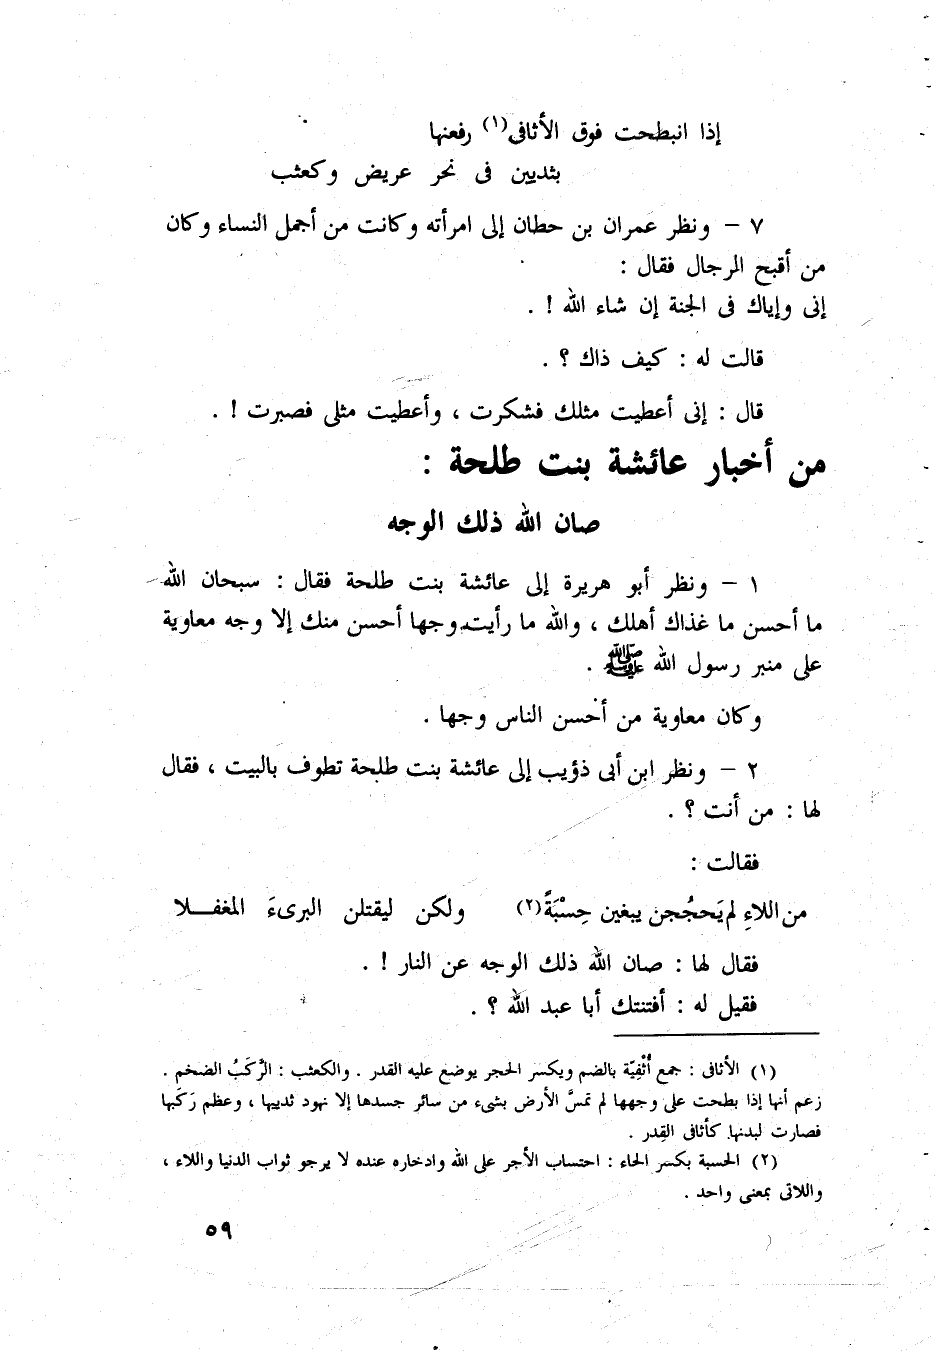 إذا انبطحت فوق الأثافى(١) رفعنها
بثديين فى نحر عريض وكعثب
٧ – ونظر عمران بن حطان إلى امرأته وكانت من أجمل النساء وكان
من أقبح الرجال فقال :
إنى وإياك فى الجنة إن شاء الله ! .
قالت له : كيف ذاك ؟ .
قال : إنى أعطيت مثلك فشكرت ، وأعطيت مثلى فصبرت ! .
من أخبار عائشة بنت طلحة :
صان الله ذلك الوجه
١ – ونظر أبو هريرة إلى عائشة بنت طلحة فقال : سبحان الله
ما أحسن ما غذاك أهلك ، والله ما رأيت وجها أحسن منك إلا وجه معاوية
على منبر رسول الله ﷺ .
وكان معاوية من أحسن الناس وجها .
٢ – ونظر ابن أبى ذؤيب إلى عائشة بنت طلحة تطوف بالبيت ، فقال
لها : من أنت ؟ .
فقالت :
من اللاءِ لم يَحجُجن يبغين حِسْبَةً(٢) ولكن ليقتلن البرىءَ المغفــلا
فقال لها : صان الله ذلك الوجه عن النار ! .
فقيل له : أفتنتك أبا عبد الله ؟ .
(١) الأثافى : جمع أُثْفِيّة بالضم ويكسر الحجر يوضع عليه القدر . والكعثب : الرَّكَبُ الضخم .
زعم أنها إذا بطحت على وجهها لم تمسَّ الأرض بشىء من سائر جسدها إلا نهود ثدييها ، وعظم رَكَبها
فصارت لبدنها كأثافى القِدر .
(٢) الحسبة بكسر الحاء : احتساب الأجر على الله وادخاره عنده لا يرجو ثواب الدنيا واللاء ،
واللاتى بمعنى واحد .
٥٩